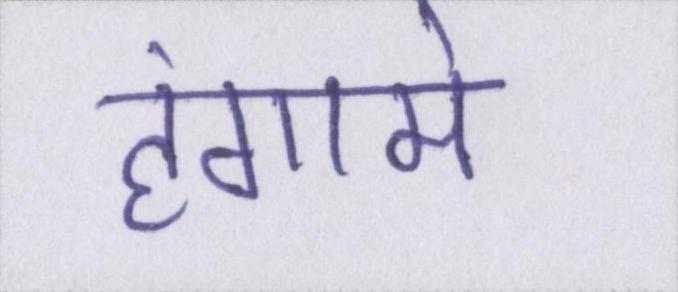 हंगामे